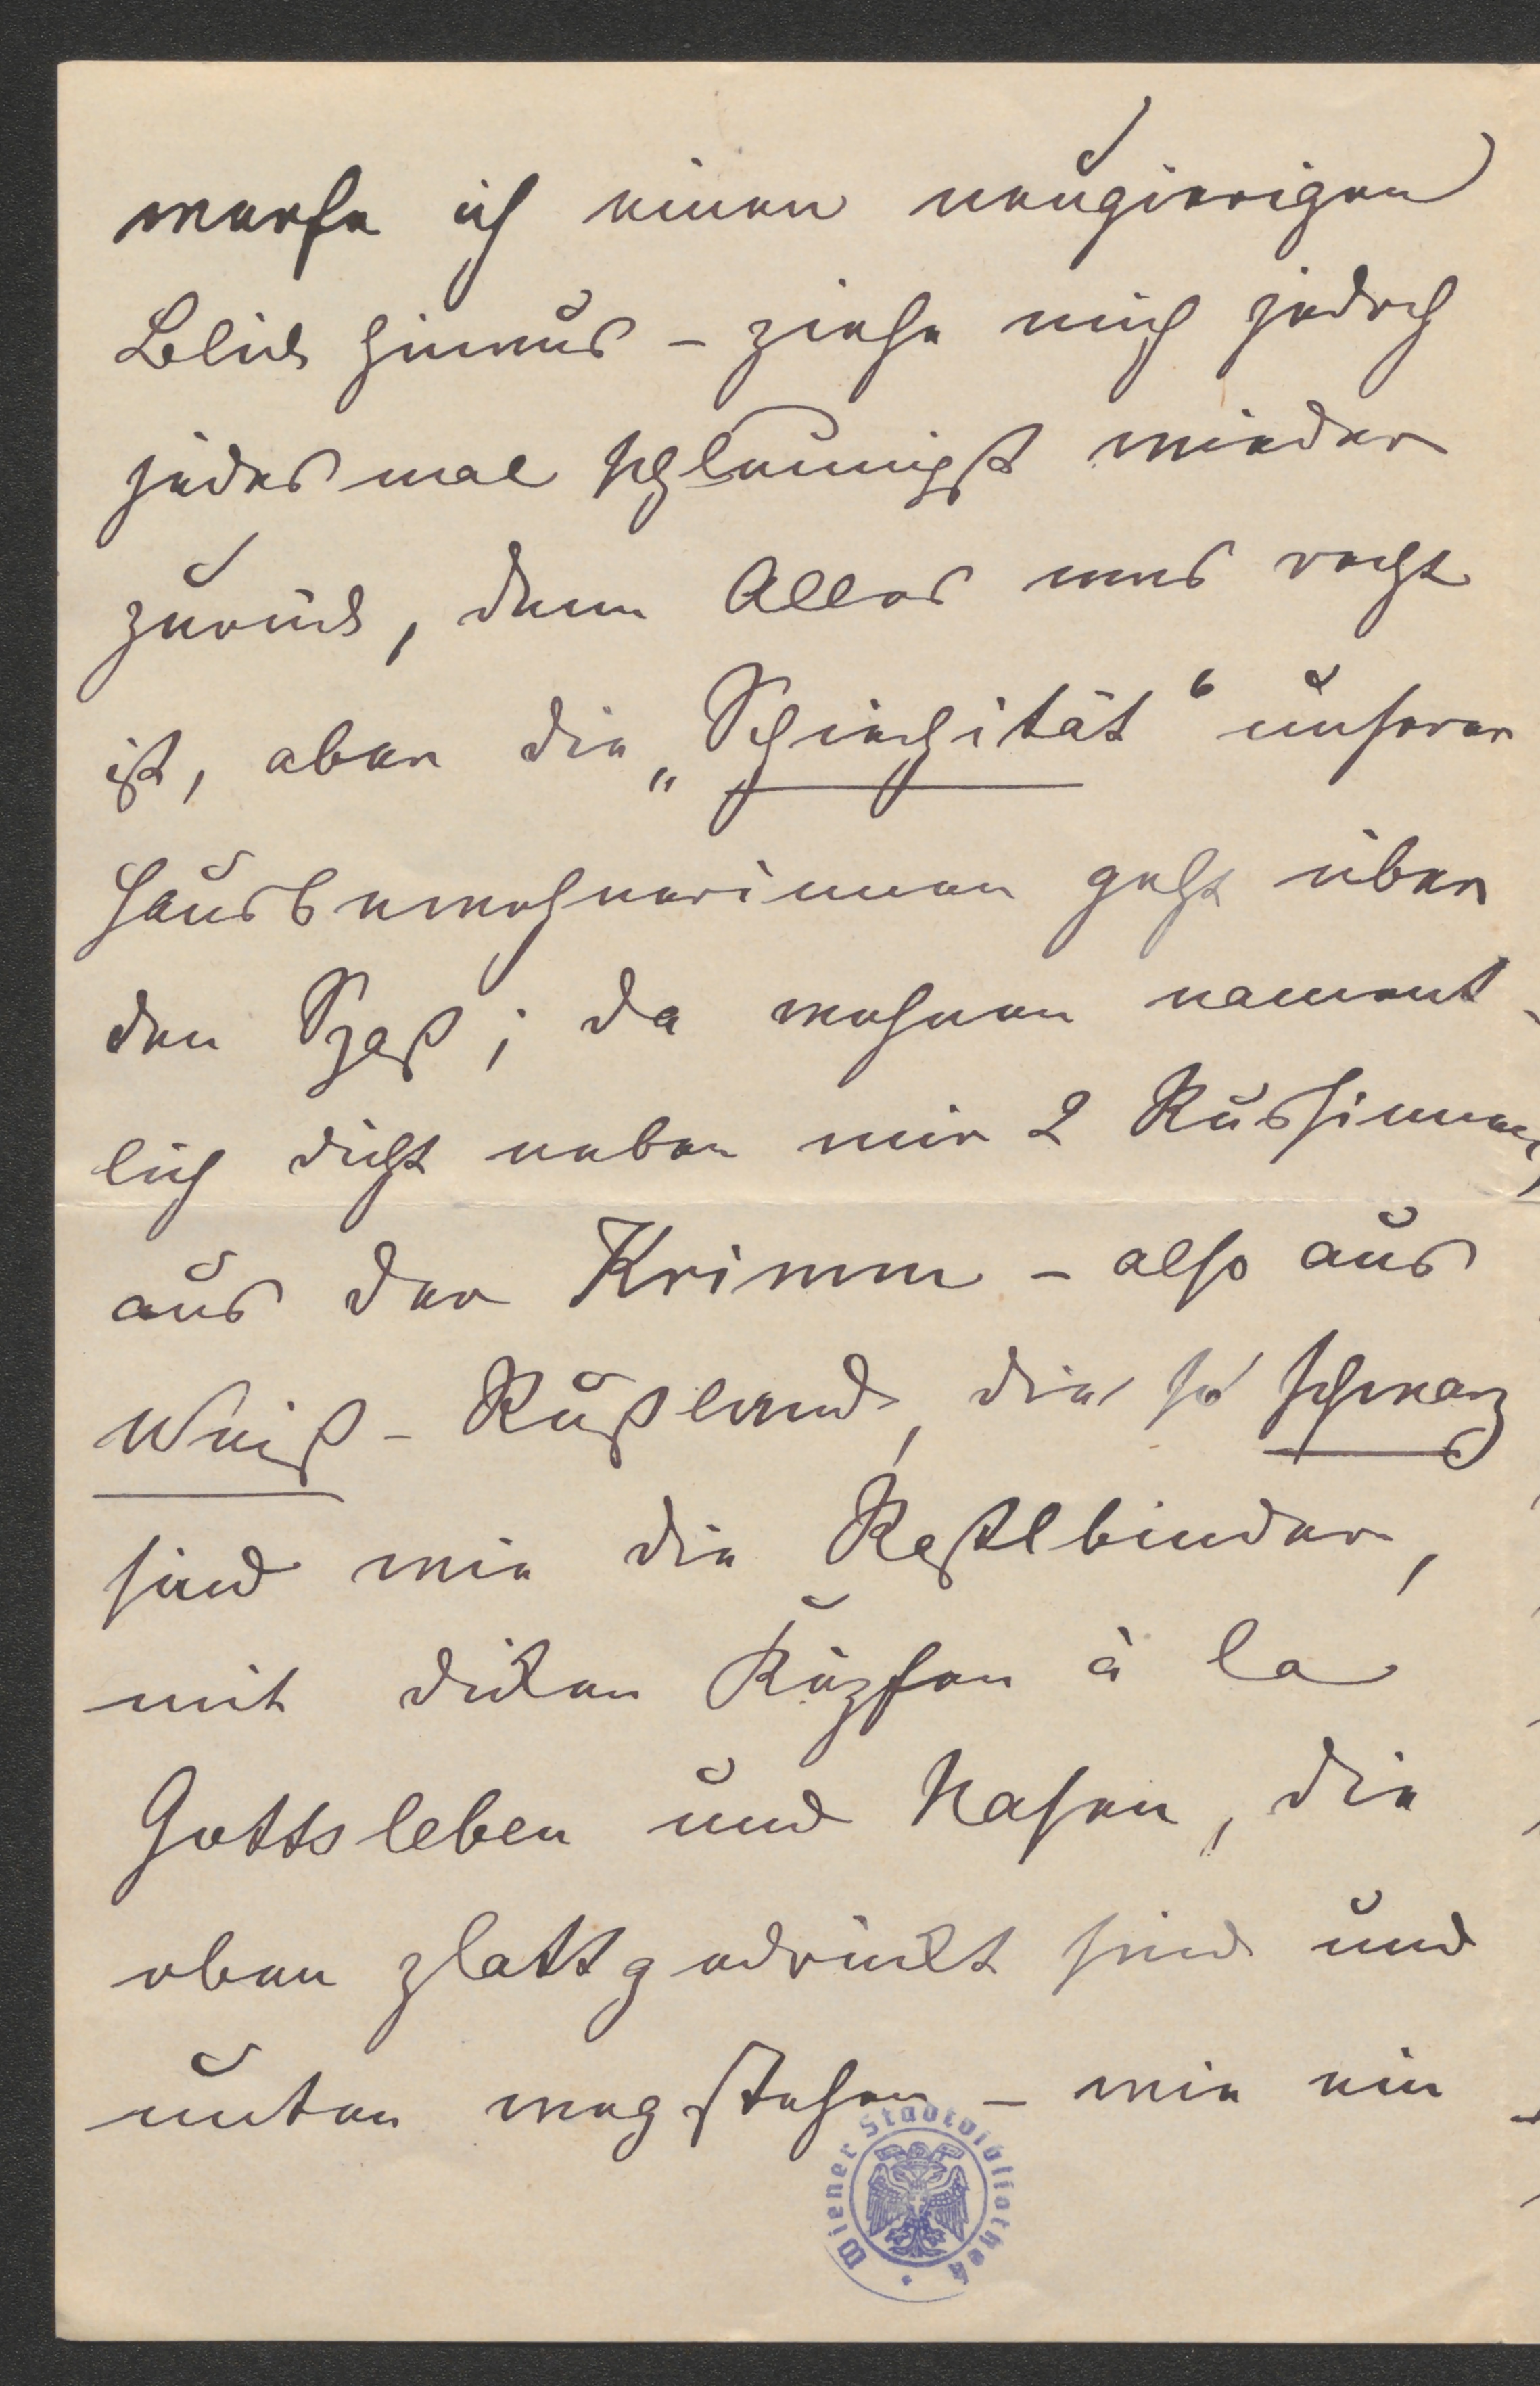 werfe ich einen neugierigen
Blick hinaus – ziehe mich jedoch
jedes mal schleunigst wieder
zurück, denn Alles was recht
ist, aber die „Schiechität“ unserer
Hausbewohnerinnen geht über
den Spaß; da wohnen nament-
lich dicht neben mir 2 Russinnen,
aus der Krimm – also aus
Weiß-Rußland, die so schwarz
sind wie die Rastlbinder,
mit dicken Köpfen à la
Gottsleben und Nasen, die
oben plattgedrückt sind und
unten wegstehen – wie ein
Wiener Stadtbibliothek